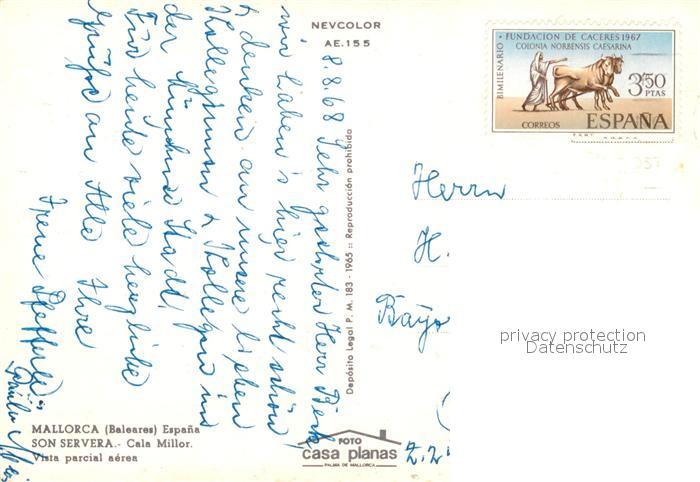 NEVCOLOR
AE.155
BIMILENARIO · FUNDACION DE CACERES 1967
COLONIA NORBENSIS CAESARINA
3'50
PTAS
CORREOS
ESPAÑA
8.8.68 Sehr geehrter Herr
wir haben's hier recht schön
& denken an unsere lieben
Kolleginnen & Kollegen in
der Stadt,
Für heute viele herzliche
Grüße an Alle Ihre
Irene
Herrn
H.
Depósito Legal P. M. 183 - 1965 :: Reproducción prohibida
privacy protection
Datenschutz
MALLORCA (Baleares) España
SON SERVERA.- Cala Millor.
Vista parcial aérea
FOTO
casa planas
PALMA DE MALLORCA